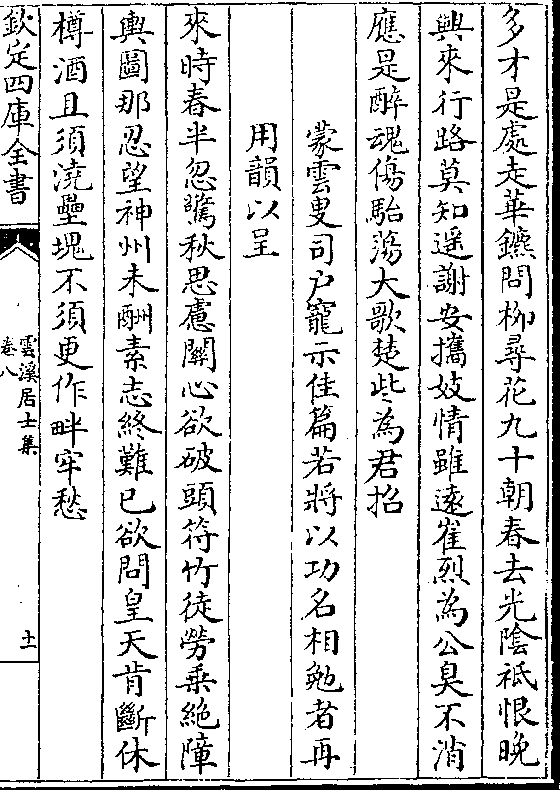 多才是處走華鑣問柳尋花九十朝春去光陰祗恨晚
興來行路莫知遥謝安攜妓情雖遠崔烈為公臭不消
應是醉魂傷駘蕩大歌楚些為君招
蒙雲叟司户寵示佳篇若將以功名相勉者再
用韻以呈
來時春半忽驚秋思慮關心欲破頭符竹徒勞乗絶障
輿圖那忍望神州未酬素志終難已欲問皇天肯斷休
樽酒且須澆壘塊不須更作畔牢愁
欽定四庫全書
雲溪居士集
卷八
十一